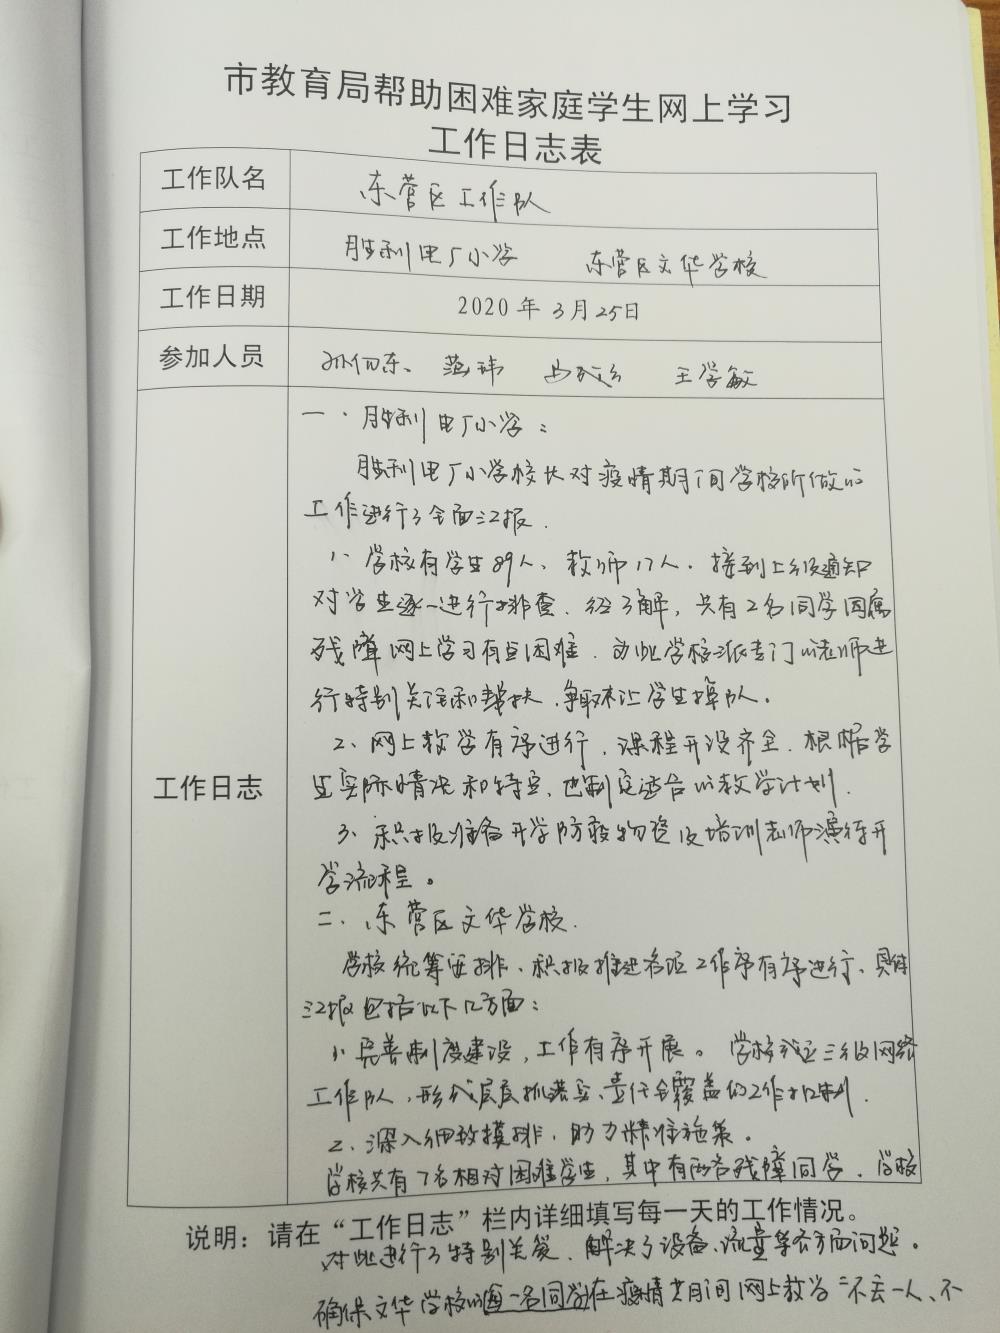 市教育局帮助困难家庭学生网上学习
工作日志表
工作队名 东营区工作队
工作地点 胜利电厂小学 东营区文华学校
工作日期 2020年3月25日
参加人员 孙伯东、 范玮 王学敏
工作日志
一、胜利电厂小学：
胜利电厂小学校长对疫情期间学校所做的
工作进行了全面汇报.
1、学校有学生89人、教师17人.接到上级通知
对学生逐一进行排查.经了解，共有2名同学因属
残障网上学习有些困难.为此学校派专门的老师进
行特别关注和帮扶.争取不让学生掉队。
2、网上教学有序进行，课程开设齐全.根据学
生实际情况和特定，也制定适合的教学计划.
3、积极准备开学防疫物资及培训老师演练开
学流程。
二、东营区文华学校.
学校统筹安排、积极推进各项工作序有序进行、具体
汇报包括以下几方面：
1、完善制度建设，工作有序开展。学校成立三级网络
工作队，形成层层抓落实、责任全覆盖的工作机制.
2、深入细致摸排，助力精准施策。
学校共有7名相对困难学生，其中有两名残障同学.学校
说明：请在“工作日志”栏内详细填写每一天的工作情况。
对此进行了特别关爱、解决了设备、流量等各方面问题。
确保文华学校的每一名同学在疫情期间网上教学“不丢一人、不